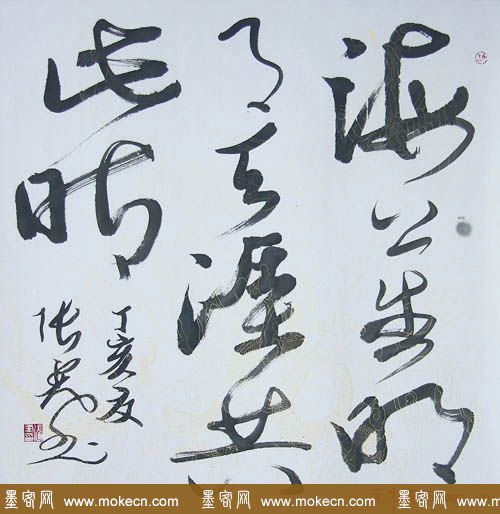 海上生明
月天涯共
此时
丁亥夏
张
墨客网 www.mokecn.com 墨客网 www.mokecn.com 墨客网 www